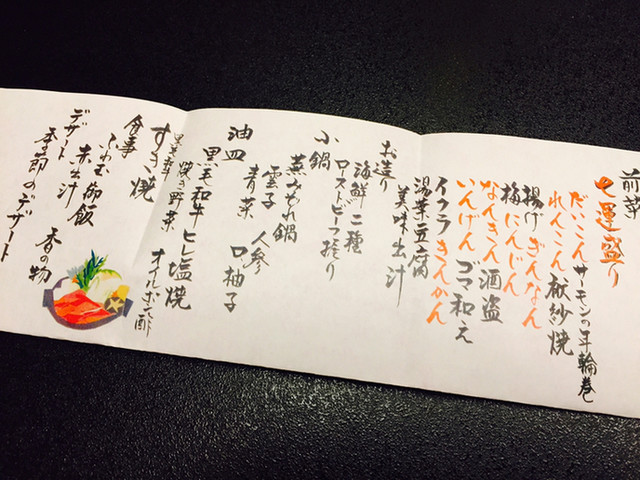 前菜
七運盛り
だいこん サーモンの年輪巻
れんこん 袱紗焼
揚げぎんなん
梅にんじん
なんきん 酒盗
いんげん ゴマ和え
イクラ きんかん
湯葉豆腐
美味出汁
お造り
海鮮二種
ローストビーフ握り
小鍋
蕪みぞれ鍋
雲子 人参
青菜 柚子
油皿
黒毛和牛 ヒレ塩焼
焼き野菜 オイルポン酢
すき焼
食事
ふわむ御飯
赤出汁 香の物
デザート
季節のデザート